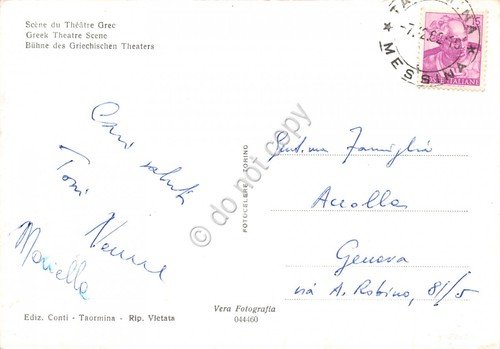 Scène du Théâtre Grec
Greek Theatre Scene
Bühne des Griechischen Theaters
TAORMINA
-7.12.62
MESSINA
ITALIANE
Cari saluti
Toni
Mariella
do not copy
FOTOCELERE TORINO
Gent.ma Famiglia
Accolla
Genova
via A. Robino, 81/5
Vera Fotografia
044460
Ediz. Conti - Taormina - Rip. Vietata